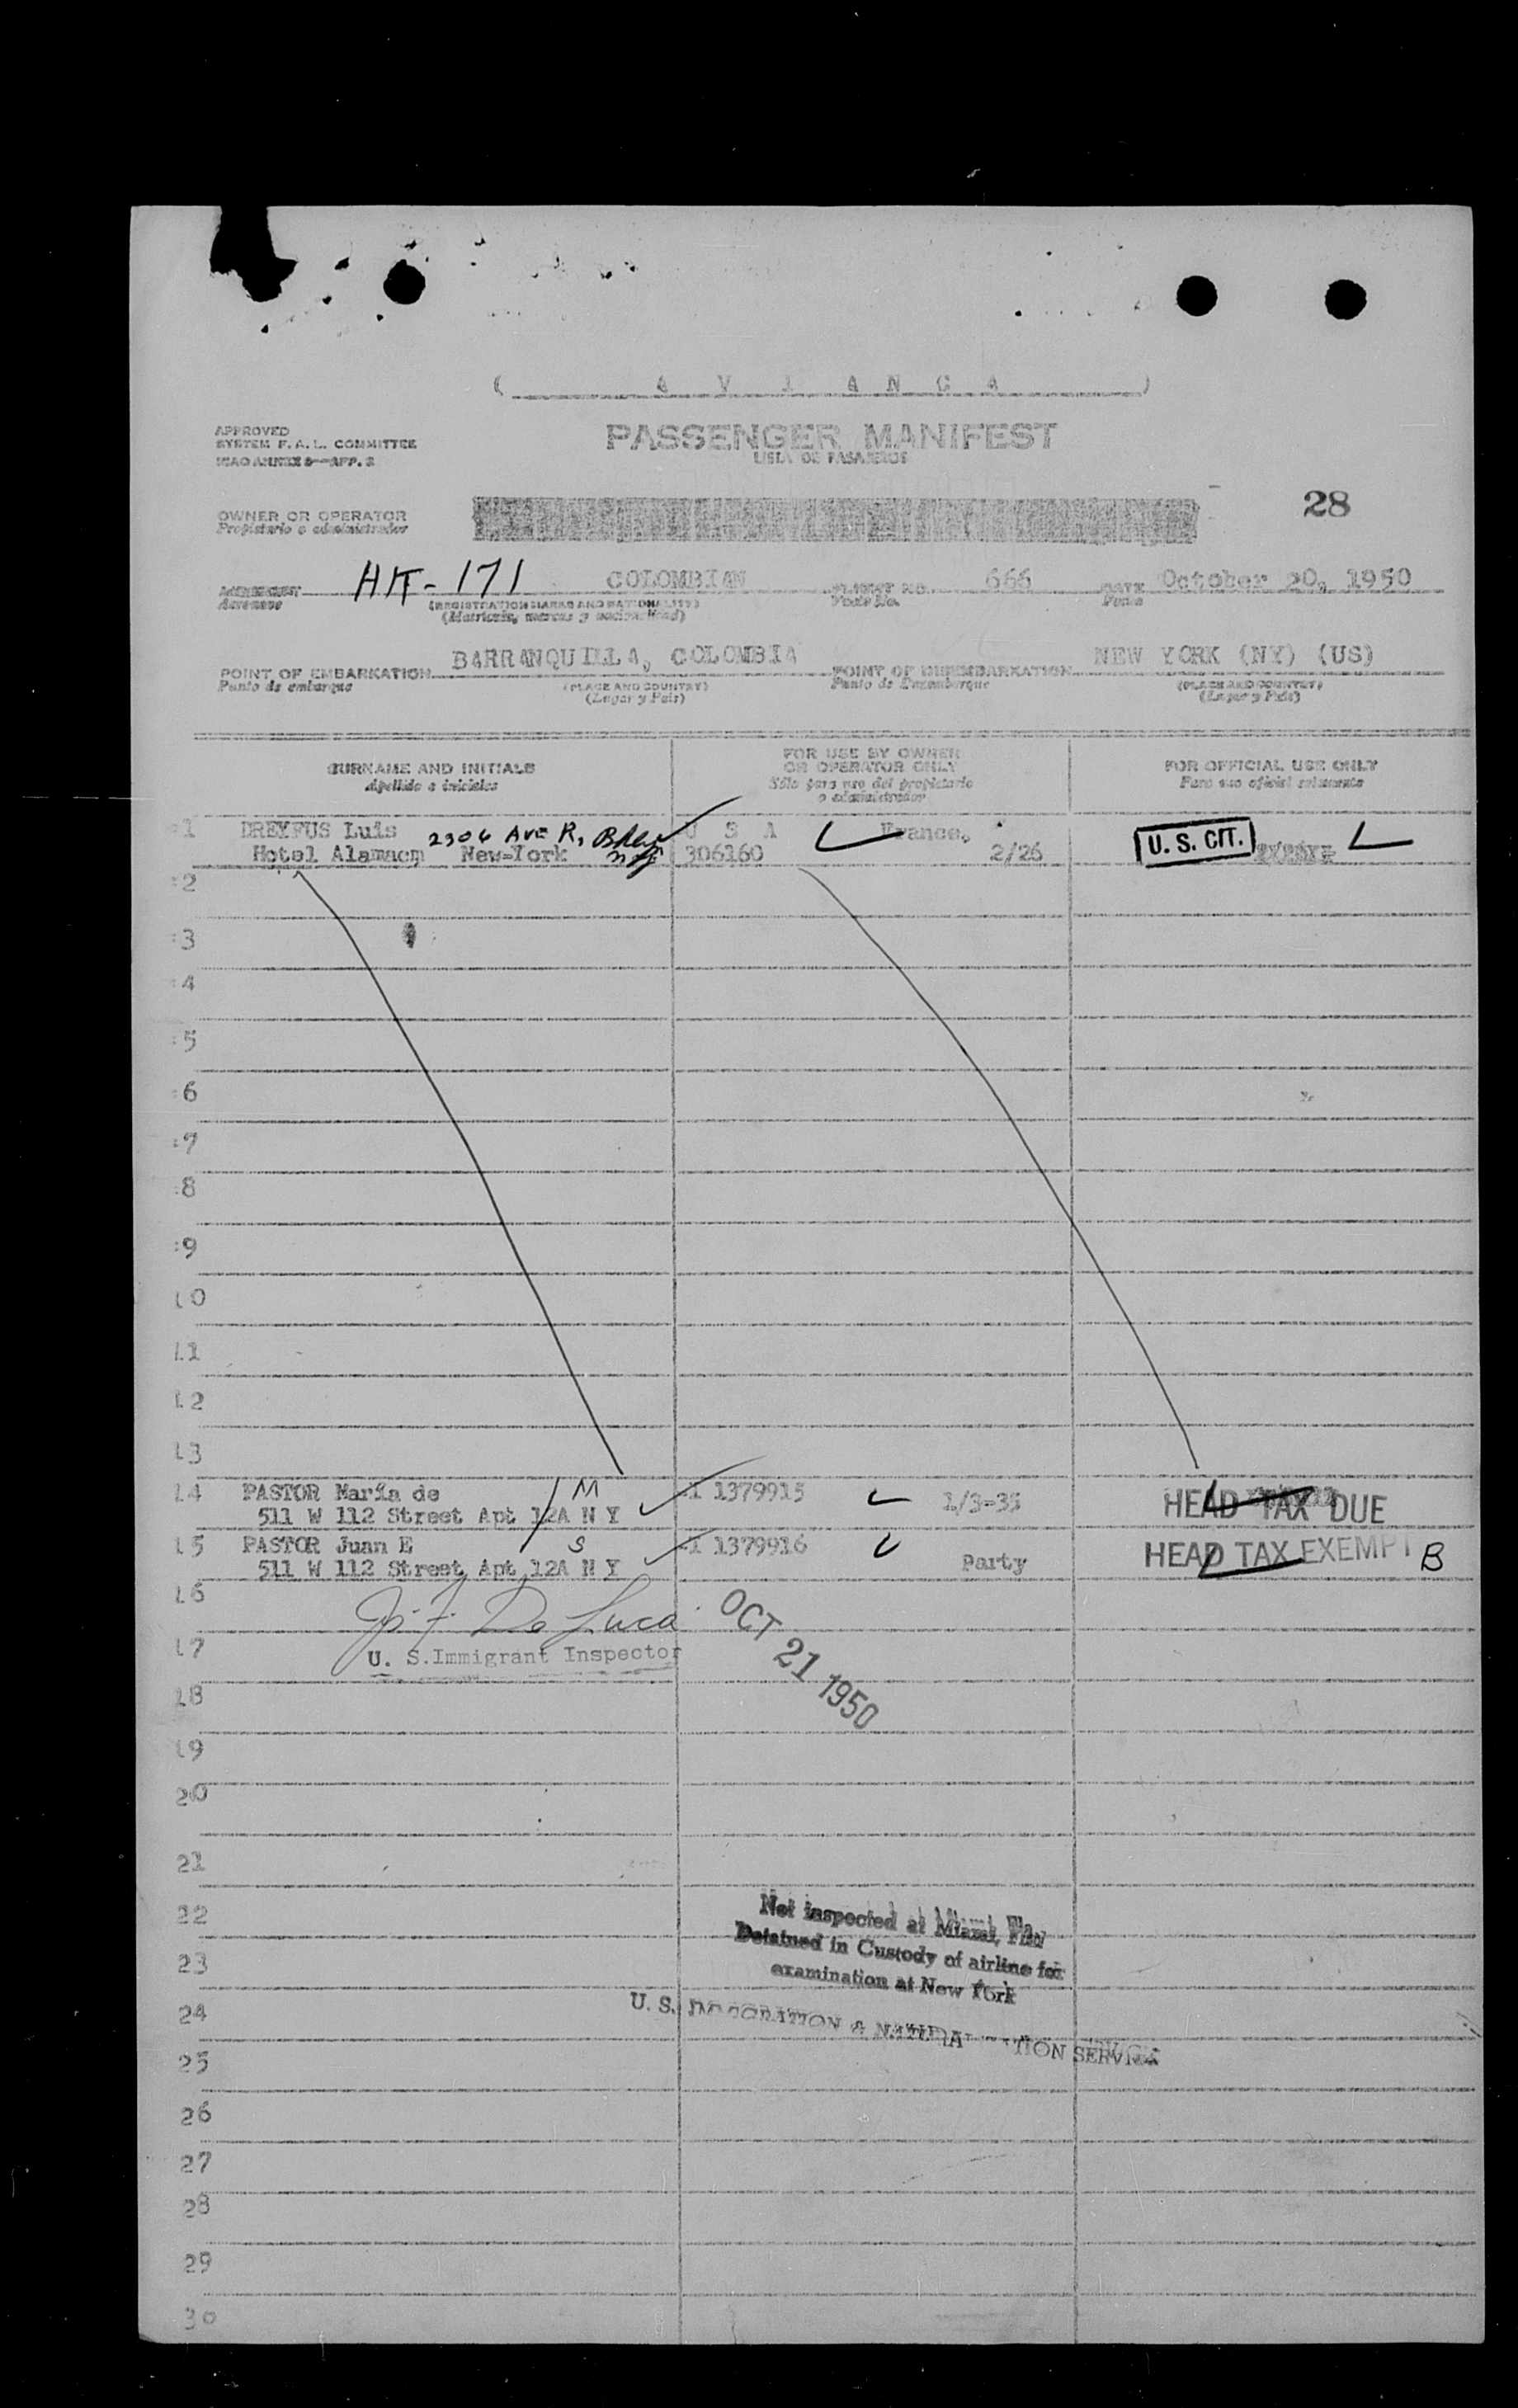 ( A V I A N C A )
APPROVED
SYSTEM F.A.L. COMMITTEE
ICAO ANNEX 9—APP. 2
PASSENGER MANIFEST
LISTA DE PASAJEROS
28
OWNER OR OPERATOR
Propietario o administrador
HK-171 COLOMBIAN FLIGHT NO. 666 DATE October 20, 1950
Aeronave (REGISTRATION MARKS AND NATIONALITY) Fecha
(Matrícula, marcas y nacionalidad)
POINT OF EMBARKATION BARRANQUILLA, COLOMBIA POINT OF DISEMBARKATION NEW YORK (NY) (US)
Punto de embarque (PLACE AND COUNTRY) Punto de Desembarque (PLACE AND COUNTRY)
(Lugar y País) (Lugar y País)
SURNAME AND INITIALS FOR USE BY OWNER OR OPERATOR ONLY FOR OFFICIAL USE ONLY
Apellido e iniciales Sólo para uso del propietario o administrador Para uso oficial solamente
1 DREYFUS Luis 2306 Ave R, U S A France, U. S. CIT.
Hotel Alamacm New-York 306160 2/26
2
3
4
5
6
7
8
9
10
11
12
13
14 PASTOR María de M 1379915 1/3-35 HEAD TAX DUE
511 W 112 Street Apt 12A N Y
15 PASTOR Juan E S 1379916 Party HEAD TAX EXEMPT B
511 W 112 Street Apt 12A N Y
16
De Luca OCT 21 1950
17 U. S. Immigrant Inspector
18
19
20
21
22 Not inspected at Miami, Fla
Detained in Custody of airline for
23 examination at New York
24 U. S. IMMIGRATION & NATURALIZATION SERVICE
25
26
27
28
29
30